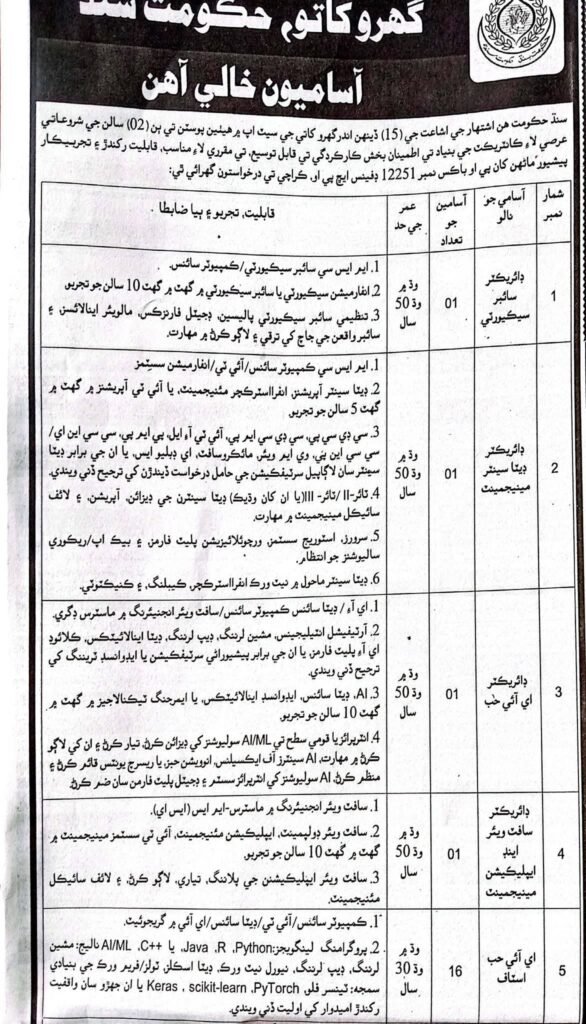 گهرو کاتو، حڪومت سنڌ
آساميون خالي آهن
سنڌ حڪومت هن اشتهار جي اشاعت جي (15) ڏينهن اندر گهرو کاتي جي سيٽ اپ ۾ هيٺين پوسٽن تي ٻن (02) سالن جي شروعاتي
عرصي لاءِ ڪانٽريڪٽ جي بنياد تي اطمينان بخش ڪارڪردگي تي قابل توسيع، تي مقرري لاءِ مناسب، قابليت رکندڙ ۽ تجربيڪار
پيشيور ماڻهن کان پي او باڪس نمبر 12251 ڊفينس ايڇ پي او، ڪراچي تي درخواستون گهرائي ٿي:
شمار نمبر
آسامي جو نالو
آسامين جو تعداد
عمر جي حد
قابليت، تجربو ۽ ٻيا ضابطا
1
ڊائريڪٽر
سائبر
سيڪيورٽي
01
وڌ ۾
وڌ 50
سال
1. ايم ايس سي سائبر سيڪيورٽي/ڪمپيوٽر سائنس.
2. انفارميشن سيڪيورٽي يا سائبر سيڪيورٽي ۾ گهٽ ۾ گهٽ 10 سالن جو تجربو.
3. تنظيمي سائبر سيڪيورٽي پاليسين، ڊجيٽل فارنزڪس، مالويئر اينالائسز، ۽
سائبر واقعن جي جاچ کي ترقي ۽ لاڳو ڪرڻ ۾ مهارت.
2
ڊائريڪٽر
ڊيٽا سينٽر
مينيجمينٽ
01
وڌ ۾
وڌ 50
سال
1. ايم ايس سي ڪمپيوٽر سائنس/آئي ٽي/انفارميشن سسٽمز
2. ڊيٽا سينٽر آپريشنز، انفرااسٽرڪچر مئنيجمينٽ، يا آئي ٽي آپريشنز ۾ گهٽ ۾
گهٽ 5 سالن جو تجربو.
3. سي ڊي سي پي، سي ڊي سي ايم پي، آئي ٽي آءِ ايل، پي ايم پي، سي سي اين اي/
سي سي اين پي، وي ايم ويئر، مائڪروسافٽ، اي ڊبليو ايس، يا ان جي برابر ڊيٽا
سينٽر سان لاڳاپيل سرٽيفڪيشن جي حامل درخواست ڏيندڙن کي ترجيح ڏني ويندي.
4. ٽائر-II /ٽائر-III (يا ان کان وڌيڪ) ڊيٽا سينٽرن جي ڊيزائن، آپريشن، ۽ لائف
سائيڪل مينيجمينٽ ۾ مهارت.
5. سرورز، اسٽوريج سسٽمز، ورچوئلائيزيشن پليٽ فارمز، ۽ بيڪ اپ/ريڪوري
سالوشنز جو انتظام.
6. ڊيٽا سينٽر ماحول ۾ نيٽ ورڪ انفرااسٽرڪچر، ڪيبلنگ، ۽ ڪنيڪٽوٽي.
3
ڊائريڪٽر
اي آئي حب
01
وڌ ۾
وڌ 50
سال
1. اي آءِ / ڊيٽا سائنس ڪمپيوٽر سائنس/سافٽ ويئر انجنيئرنگ ۾ ماسٽرس ڊگري.
2. آرٽيفيشل انٽيليجينس، مشين لرننگ، ڊيپ لرننگ، ڊيٽا اينالائيٽڪس، ڪلائوڊ
اي آءِ پليٽ فارمز، يا ان جي برابر پيشيوراڻي سرٽيفڪيشن يا ايڊوانسڊ ٽريننگ کي
ترجيح ڏني ويندي.
3. AI، ڊيٽا سائنس، ايڊوانسڊ اينالائيٽڪس، يا ايمرجنگ ٽيڪنالاجيز ۾ گهٽ ۾
گهٽ 10 سالن جو تجربو.
4. انٽرپرائز يا قومي سطح تي AI/ML سوليوشنز کي ڊيزائن ڪرڻ، تيار ڪرڻ ۽ ان کي لاڳو
ڪرڻ ۾ مهارت، AI سينٽرز آف ايڪسيلنس، انوويشن حبز، يا ريسرچ يونٽس قائم ڪرڻ ۽
منظم ڪرڻ، AI سوليوشنز کي انٽرپرائز سسٽم ۽ ڊجيٽل پليٽ فارمن سان ضم ڪرڻ.
4
ڊائريڪٽر
سافٽ ويئر
اينڊ
ايپليڪيشن
مينيجمينٽ
01
وڌ ۾
وڌ 50
سال
1. سافٽ ويئر انجنيئرنگ ۾ ماسٽرس-ايم ايس (ايس اي).
2. سافٽ ويئر ڊولپمينٽ، ايپليڪيشن مئنيجمينٽ، آئي ٽي سسٽمز مينيجمينٽ ۾
گهٽ ۾ گهٽ 10 سالن جو تجربو.
3. سافٽ ويئر ايپليڪيشنن جي پلاننگ، تياري، لاڳو ڪرڻ، ۽ لائف سائيڪل
مئنيجمينٽ.
5
اي آئي حب
اسٽاف
16
وڌ ۾
وڌ 30
سال
1. ڪمپيوٽر سائنس/آئي ٽي/ڊيٽا سائنس/اي آئي ۾ گريجوئيٽ.
2. پروگرامنگ لينگويجز: Python، R، Java، يا C++، AI/ML ناليج: مشين
لرننگ، ڊيپ لرننگ، نيورل نيٽ ورڪ، ڊيٽا اسڪلز، ٽولز/فريم ورڪ جي بنيادي
سمجھ: ٽينسر فلو، PyTorch، scikit-learn، Keras يا ان جهڙو سان واقفيت
رکندڙ اميدوار کي اوليت ڏني ويندي.